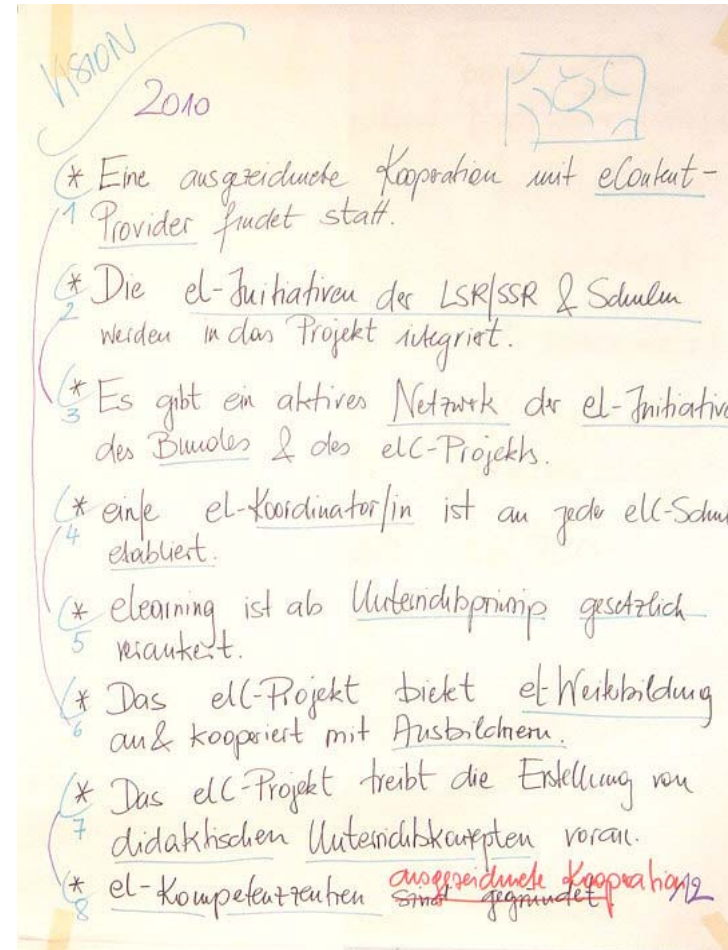 VISION
2010
* Eine ausgezeichnete Kooperation mit eContent-
1 Provider findet statt.
* Die el-Initiativen der LSR/SSR & Schulen
2 werden in das Projekt integriert.
* Es gibt ein aktives Netzwerk der el-Initiative
3 des Bundes & des elC-Projekts.
* ein/e el-Koordinator/in ist an jeder elC-Schul
4 etabliert.
* elearning ist als Unterrichtsprinzip gesetzlich
5 verankert.
* Das elC-Projekt bietet el-Weiterbildung
6 an & kooperiert mit Ausbildnern.
* Das elC-Projekt treibt die Erstellung von
7 didaktischen Unterrichtskonzepten voran.
ausgezeichnete Kooperation
* el-Kompetenzzentren sind gegründet 12
8